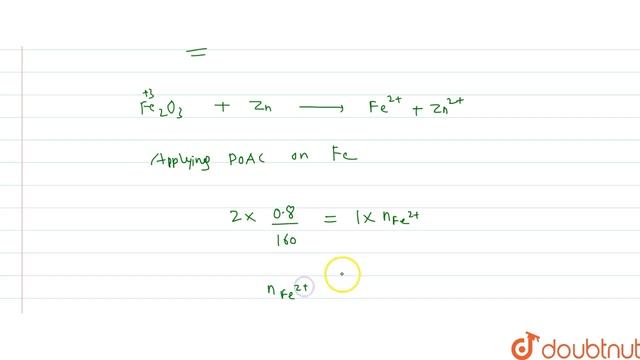 =
+3
Fe₂O₃ + Zn ⟶ Fe²⁺ + Zn²⁺
Applying POAC on Fe
2 × 0.8/160 = 1 × nFe²⁺
nFe²⁺
doubtnut